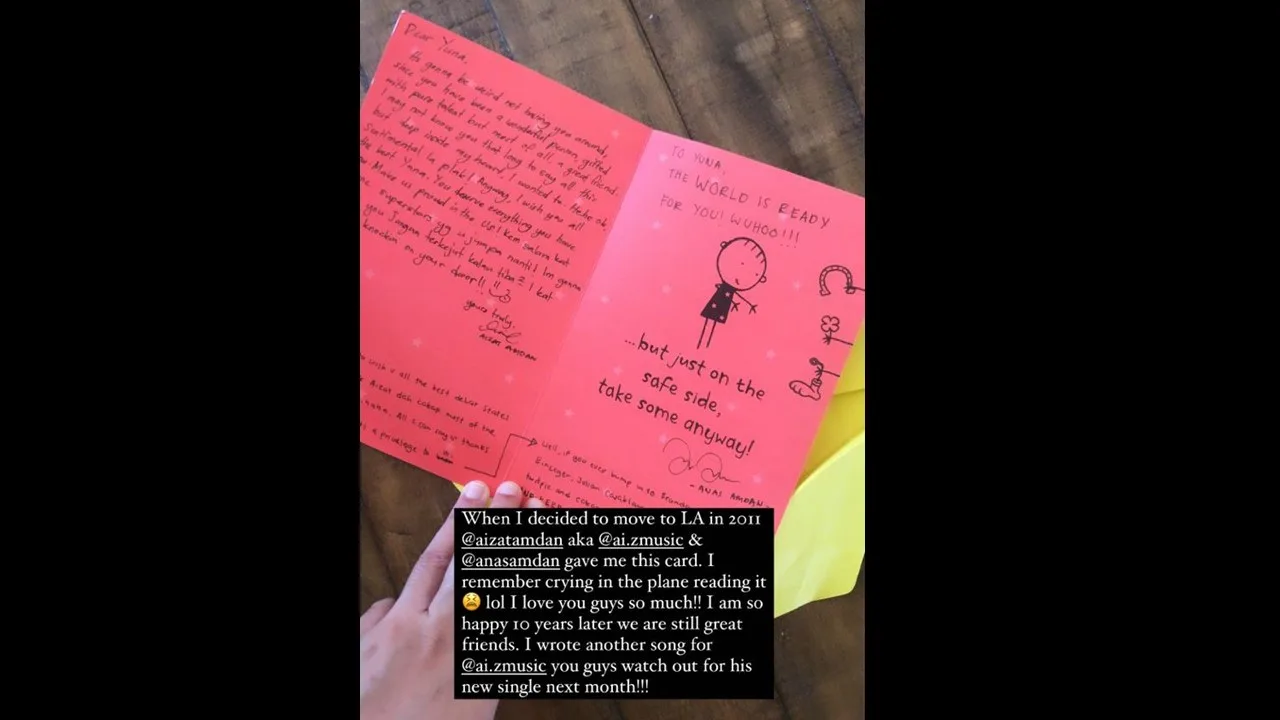 Dear Yuna,
Its gonna be weird not having you around,
since you have been a wonderful person, gifted
with pure talent but most of all, a great friend.
I may not know you that long to say all this
but deep inside my heart, I wanted to. Hehe ok,
Sentimental la plak! Anyway, I wish you all
the best Yuna. You deserve everything you have
Make us proud in the US! Kem salam kat
superstars yg u jumpa nanti! Im gonna
you Jangan terkejut kalau tiba2 I kat
knockin on your door!! !!
yours truly,
AIZAT AMDAN
wish u all the best dekat States
Aizat dah cakap most of the
haha. All I can say is thanks
a privilege to
TO YUNA,
THE WORLD IS READY
FOR YOU! WUHOO!!!
...but just on the
safe side,
take some anyway!
- ANAS AMDAN
well, if you ever bump into Brandon
Julian Casablanca
When I decided to move to LA in 2011
@aizatamdan aka @ai.zmusic &
@anasamdan gave me this card. I
remember crying in the plane reading it
😫 lol I love you guys so much!! I am so
happy 10 years later we are still great
friends. I wrote another song for
@ai.zmusic you guys watch out for his
new single next month!!!